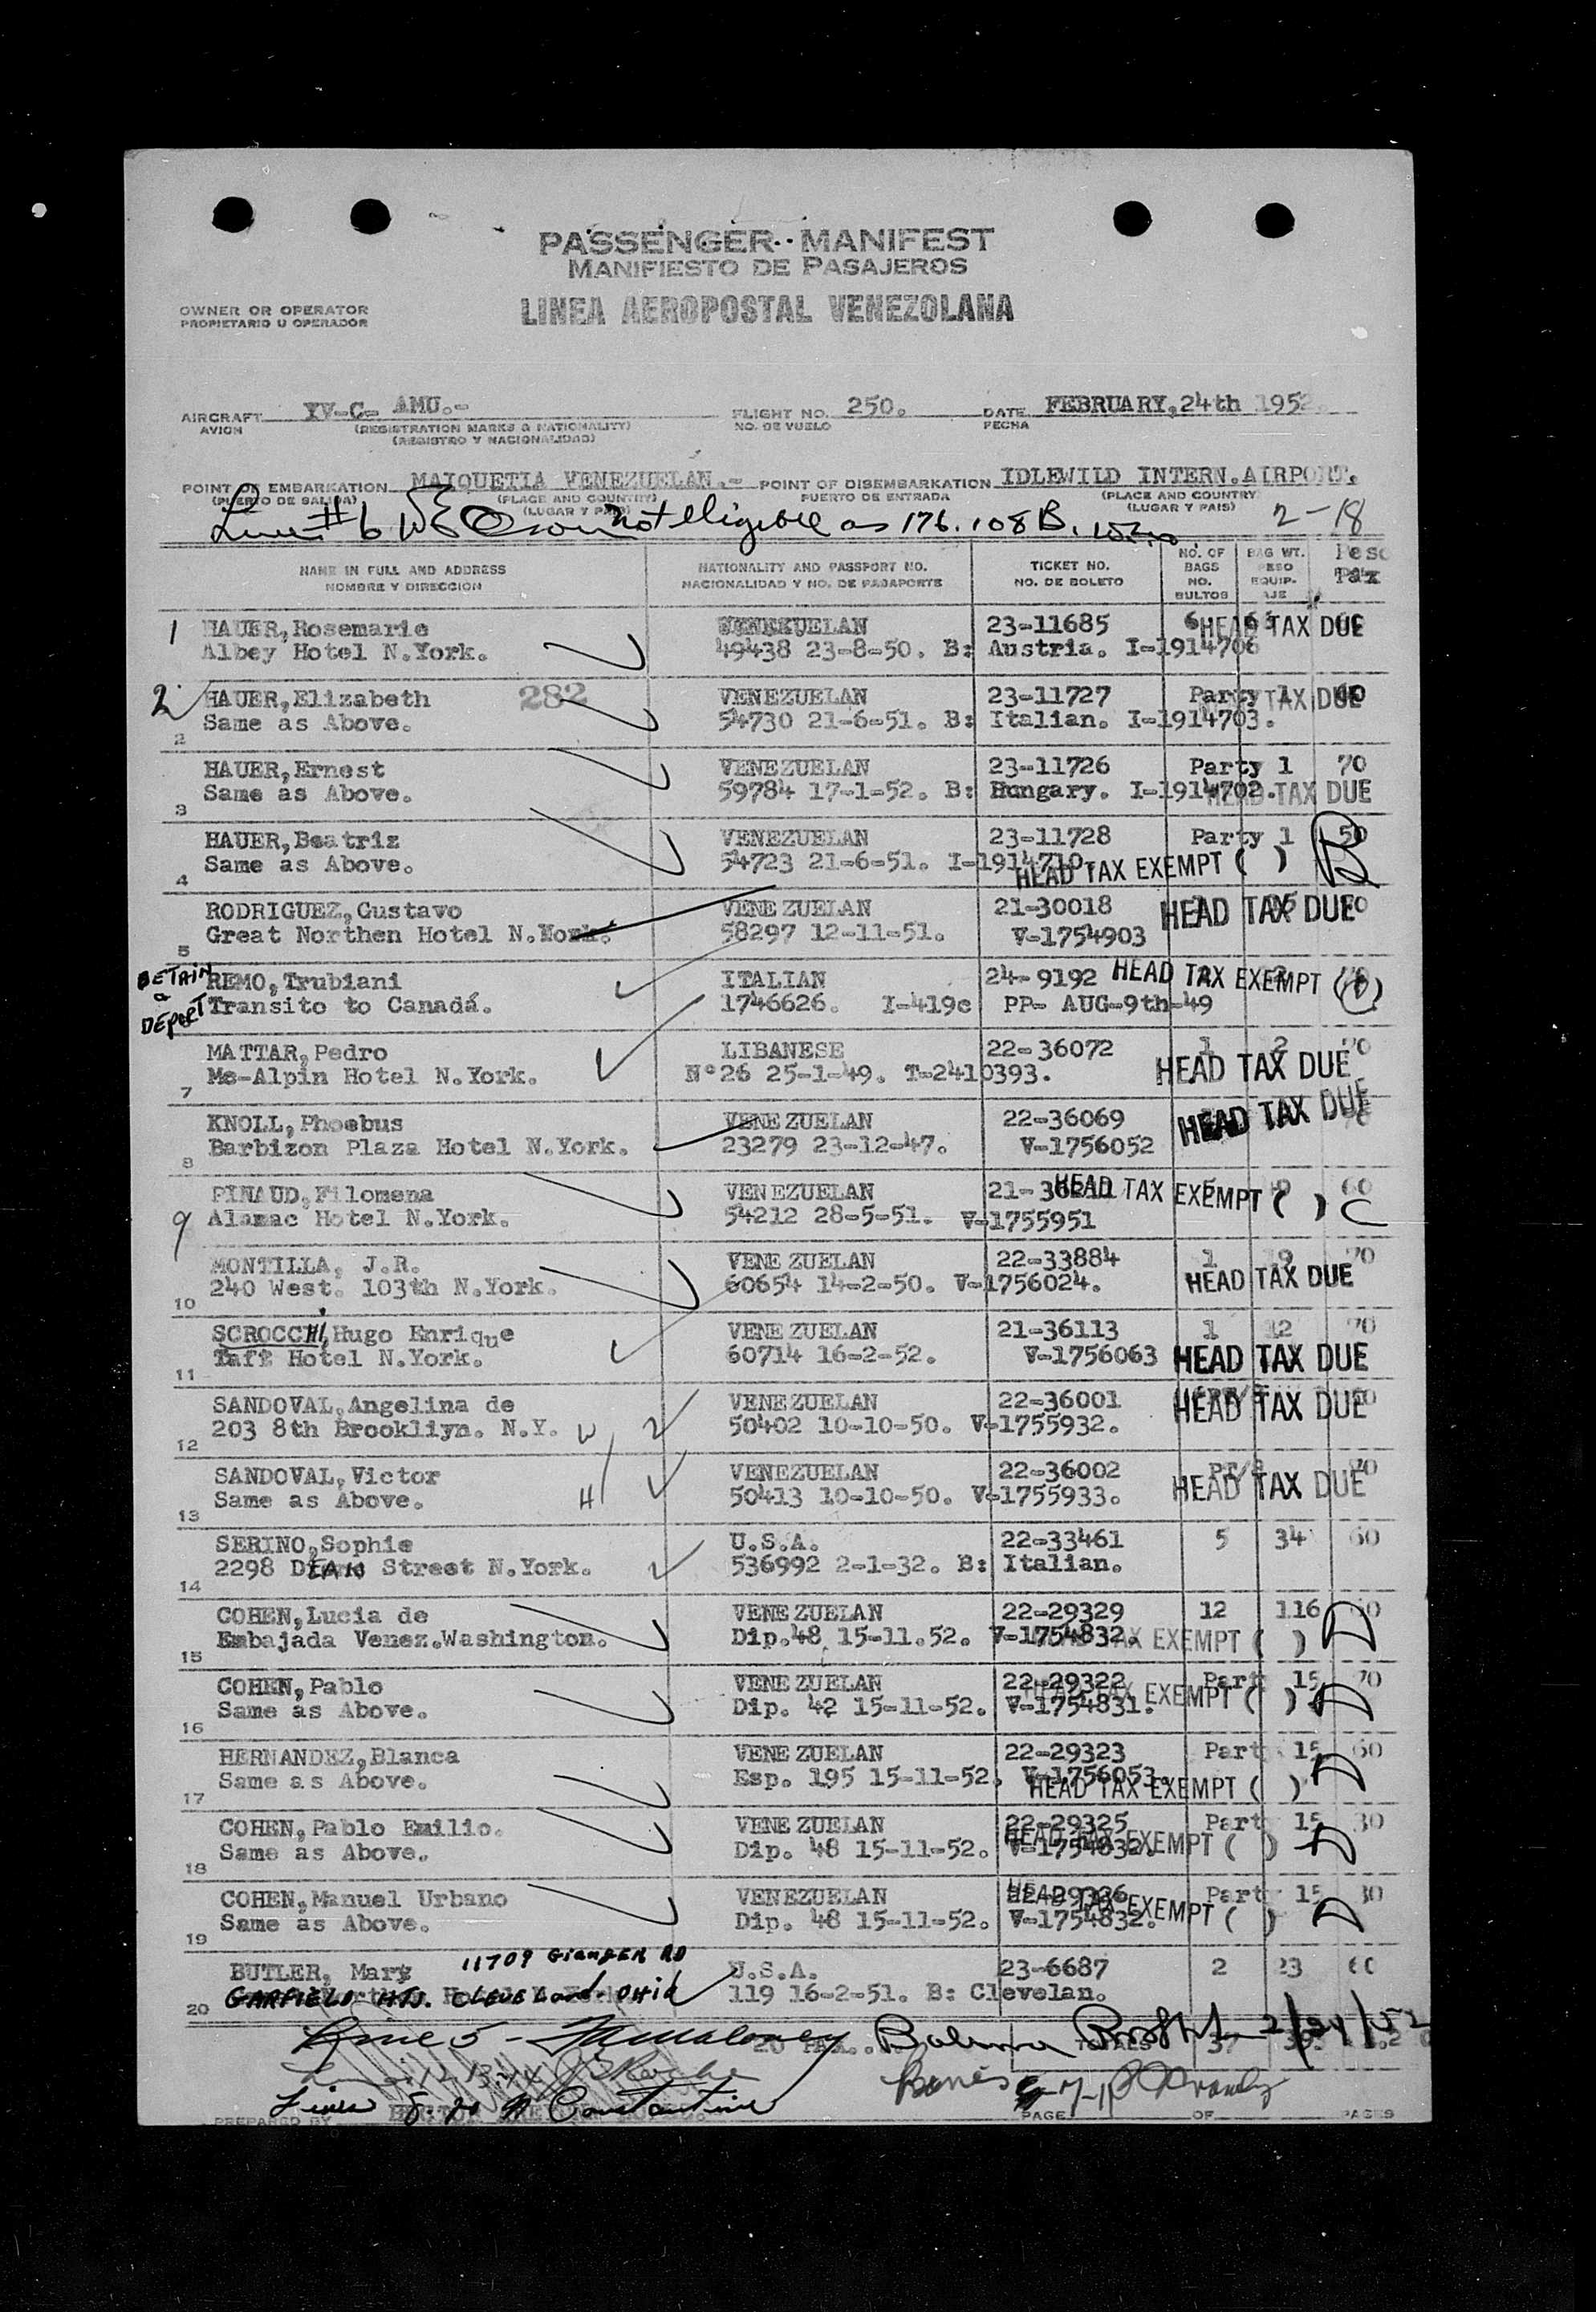 PASSENGER MANIFEST
MANIFIESTO DE PASAJEROS
OWNER OR OPERATOR
PROPIETARIO U OPERADOR
LINEA AEROPOSTAL VENEZOLANA
AIRCRAFT YV-C- AMU.- FLIGHT NO. 250. DATE FEBRUARY,24th 1952
AVION (REGISTRATION MARKS & NATIONALITY) NO. DE VUELO FECHA
(REGISTRO Y NACIONALIDAD)
POINT OF EMBARKATION MAIQUETIA VENEZUELAN.- POINT OF DISEMBARKATION IDLEWILD INTERN.AIRPORT.
(PUERTO DE SALIDA) (PLACE AND COUNTRY) PUERTO DE ENTRADA (PLACE AND COUNTRY)
(LUGAR Y PAIS) (LUGAR Y PAIS)
Line #6 not eligible as 176.108B. 2-18
NAME IN FULL AND ADDRESS NATIONALITY AND PASSPORT NO. TICKET NO. NO. OF BAGS BAG WT. Peso
NOMBRE Y DIRECCION NACIONALIDAD Y NO. DE PASAPORTE NO. DE BOLETO NO. BULTOS PESO EQUIP-AJE Pax
1 HAUER,Rosemarie VENEZUELAN 23-11685 6 HEAD TAX DUE
Albey Hotel N.York. 49438 23-8-50. B: Austria. I-1914706
2 HAUER,Elizabeth 282 VENEZUELAN 23-11727 Party 1 60 TAX DUE
Same as Above. 54730 21-6-51. B: Italian. I-1914703.
2
HAUER,Ernest VENEZUELAN 23-11726 Party 1 70
Same as Above. 59784 17-1-52. B: Hungary. I-1914702. HEAD TAX DUE
3
HAUER,Beatriz VENEZUELAN 23-11728 Party 1 50
Same as Above. 54723 21-6-51. I-1914710. HEAD TAX EXEMPT ( )
4
RODRIGUEZ,Gustavo VENEZUELAN 21-30018 HEAD TAX DUE
Great Northen Hotel N.York. 58297 12-11-51. V-1754903
5
DETAIN & DEPORT
REMO,Trubiani ITALIAN 24-9192 HEAD TAX EXEMPT
Transito to Canadá. 1746626. I-419c PP- AUG-9th-49
MATTAR,Pedro LIBANESE 22-36072 1 2 70
Mc-Alpin Hotel N.York. Nº26 25-1-49. T-2410393. HEAD TAX DUE
7
KNOLL,Phoebus VENEZUELAN 22-36069 HEAD TAX DUE
Barbizon Plaza Hotel N.York. 23279 23-12-47. V-1756052
8
PINAUD,Filomena VENEZUELAN HEAD TAX EXEMPT ( ) 60
9 Alamac Hotel N.York. 54212 28-5-51. V-1755951
MONTILLA, J.R. VENEZUELAN 22-33884 1 9 70
240 West. 103th N.York. 60654 14-2-50. V-1756024. HEAD TAX DUE
10
SCROCCHI,Hugo Enrique VENEZUELAN 21-36113 1 12 70
Taft Hotel N.York. 60714 16-2-52. V-1756063 HEAD TAX DUE
11
SANDOVAL,Angelina de VENEZUELAN 22-36001 HEAD TAX DUE
203 8th Brookliyn. N.Y. W 50402 10-10-50. V-1755932.
12
SANDOVAL,Victor VENEZUELAN 22-36002 70
Same as Above. H 50413 10-10-50. V-1755933. HEAD TAX DUE
13
SERINO,Sophie U.S.A. 22-33461 5 34 60
2298 DEAN Street N.York. 536992 2-1-32. B: Italian.
14
COHEN,Lucia de VENEZUELAN 22-29329 12 116
Embajada Venez.Washington. Dip.48 15-11.52. V-1754832. TAX EXEMPT ( )
15
COHEN,Pablo VENEZUELAN 22-29322 Part 15 70
Same as Above. Dip. 42 15-11-52. V-1754831. TAX EXEMPT ( )
16
HERNANDEZ,Blanca VENEZUELAN 22-29323 Part 15 60
Same as Above. Esp. 195 15-11-52. V-1756053. HEAD TAX EXEMPT ( )
17
COHEN,Pablo Emilio. VENEZUELAN 22-29325 Part 15 30
Same as Above. Dip. 48 15-11-52. V-1754832. HEAD TAX EXEMPT ( )
18
COHEN,Manuel Urbano VENEZUELAN 22-29326 Part 15 30
Same as Above. Dip. 48 15-11-52. V-1754832. HEAD TAX EXEMPT ( )
19
11709 GRANGER RD
BUTLER, Mary U.S.A. 23-6687 2 23 60
20 GARFIELD HTS. CLEVELAND. OHIO 119 16-2-51. B: Clevelan.
Line 5 - 20 PAX. TOTALS 37 2/24/52
Lines 8-20 Constantine
PREPARED BY PAGE OF PAGES